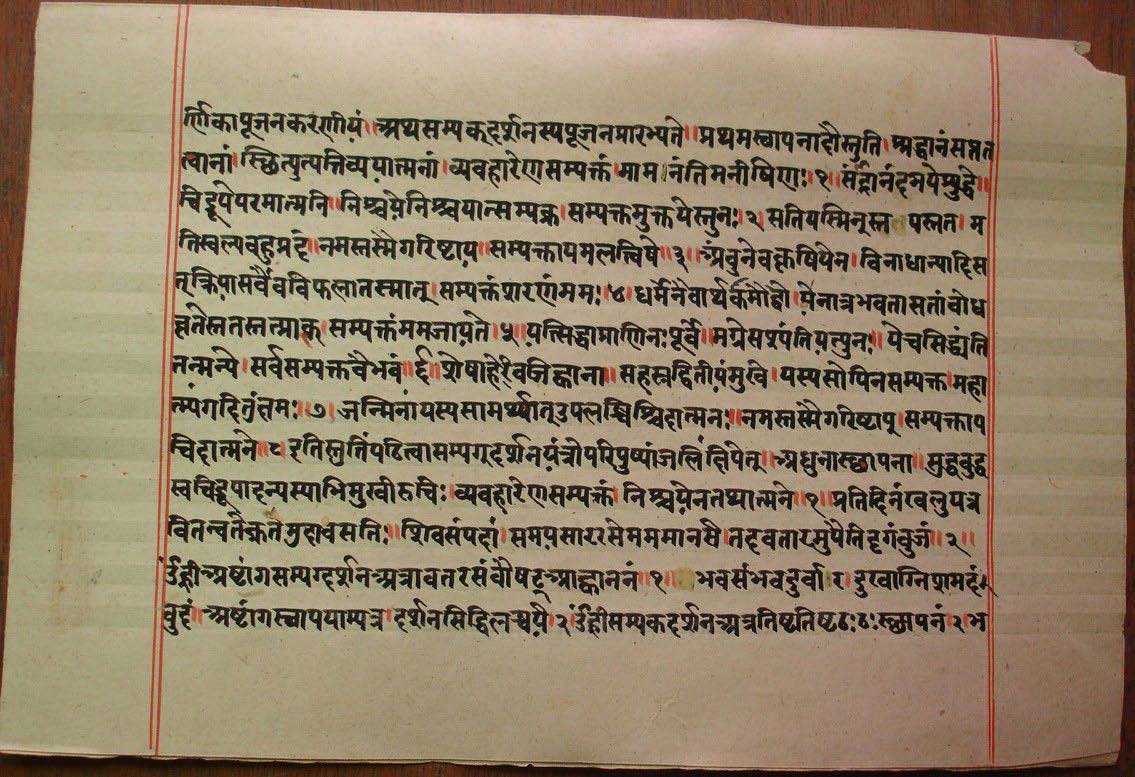 र्णिकापूजनकरणीयं॥अथसम्यक्दर्शनस्यपूजनप्रारभ्यते॥प्रथमस्थापनाहौस्तुति॥श्रद्धानंसप्तत
त्वानां॥स्छित्युत्पत्तिव्ययात्मनां॥व्यवहारेणसम्यक्तं॥माम नंतिमनीषिणः॥१॥
चिद्रूपेपरमात्मनि॥निश्चयेनिश्चयात्सम्यक्त्व॥सम्यक्तमुक्तयेस्तुनः॥२॥सतियस्मिनुस्त यस्तत॥म
तिस्वल्पबहुप्रदं॥नमस्तस्मैगरिष्टाय॥सम्यक्तायमलत्विषे॥३॥अंबुनेवकृषियेन॥विनाधान्यादिस
त्क्रिया॥सर्वैवविफलातस्मात्॥सम्यक्तंप्रारणंममः॥४॥धर्मेनैवार्थकमौद्वौ॥येनात्रभवतासतां॥बोध
सम्यक्तंममजायते॥५॥यत्सिद्धाप्राणिनःपूर्वे॥ येचसिद्ध्यंति
तन्मन्ये॥सर्वसम्यक्तवैभवं॥६॥शेषाहेरेवजिह्वाना॥सहस्रद्वितीयंमुखे॥यस्यसोपिनसम्यक्त॥महा
त्म्यंगदितुंक्षमः॥७॥जन्मिनांयस्यसामर्थ्यात्उपलब्धिश्चिदात्मनः॥नमस्तस्मैगरिष्टाय॥सम्यक्ताय
चिदात्मने॥८॥इतिस्तुतिंपठित्वासम्यग्दर्शनयंत्रोपरिपुष्पांजलिंक्षिपेत्॥अधुनास्छापना॥सुद्धबुद्ध
स्वचिद्रूपादन्यस्याभिमुखीरुचिः॥व्यवहारेणसम्यक्तं॥निश्चयेनतथात्मने॥१॥प्रतिदिनंखलुयत्र
वितन्वते मुदावसतिः॥शिवसंपदां॥समयसाररसेमममानसे॥तदवतारमुपैतिदृगंबुजं॥२॥
उँह्रीअष्टांगसम्यग्दर्शनअत्रावतरसंवौषट्आह्वाननं॥१॥ भवसंभवदुर्वार॥दुखाग्निप्रामदं॥
बुदं॥अष्टांगस्थापयाम्यत्र॥दर्शनसिद्धिलब्धये॥२॥उँह्रीसम्यकदर्शनअत्रतिष्टतिष्टठःठःस्छापनं॥२॥भ